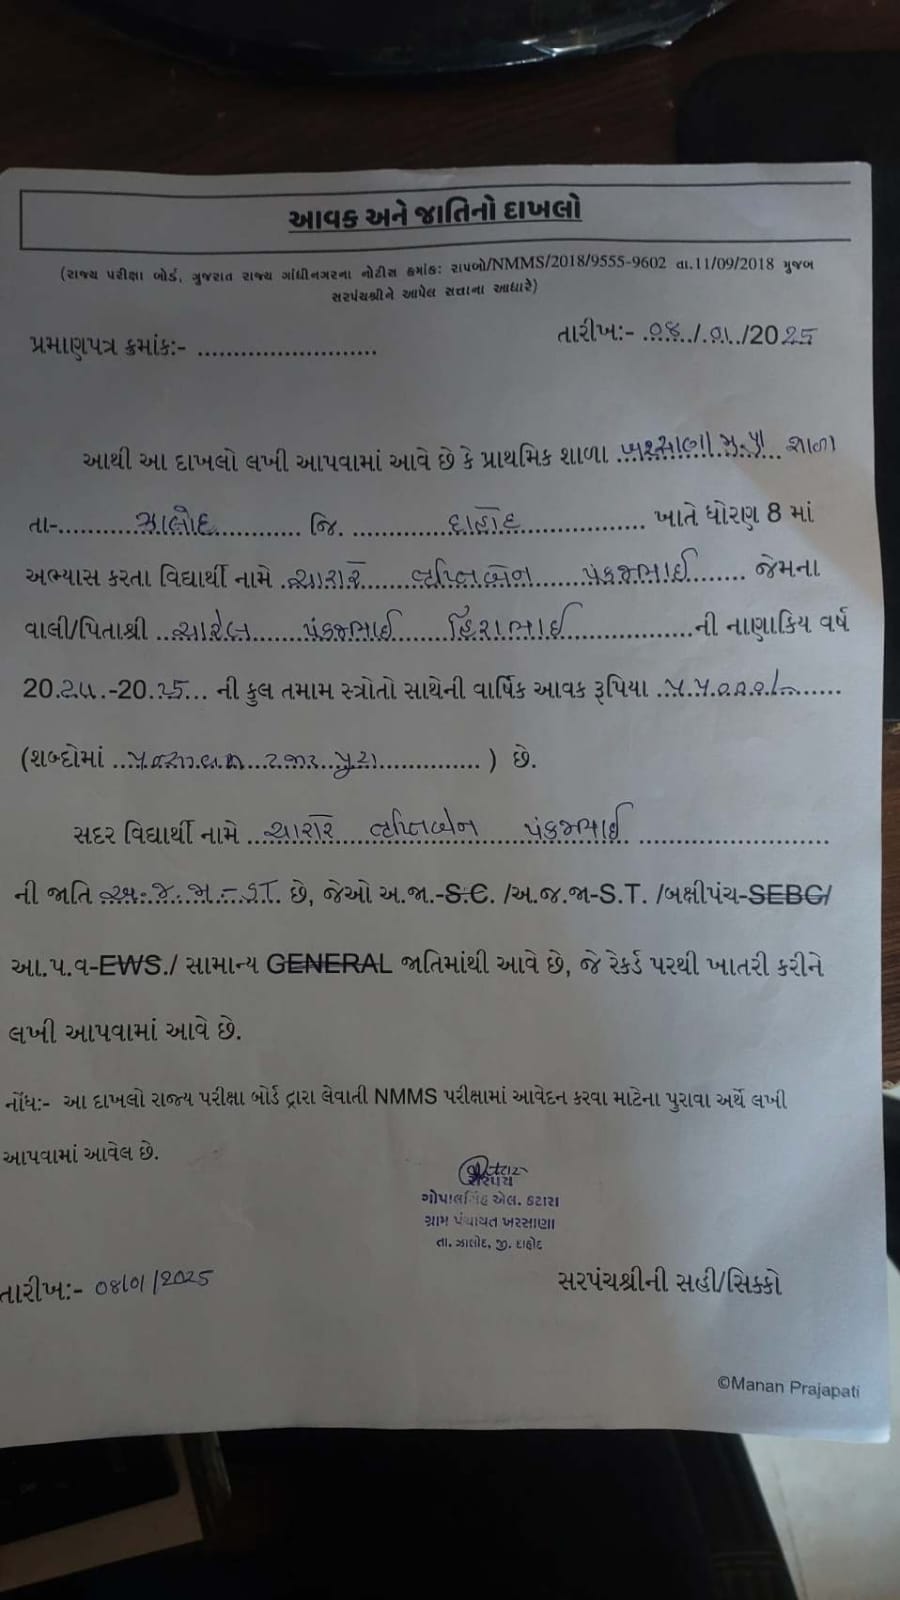 આવક અને જાતિનો દાખલો
(રાજ્ય પરીક્ષા બોર્ડ, ગુજરાત રાજ્ય ગાંધીનગરના નોટીસ ક્રમાંક: રાપબો/NMMS/2018/9555-9602 તા.11/09/2018 મુજબ
સરપંચશ્રીને આપેલ સત્તાના આધારે)
પ્રમાણપત્ર ક્રમાંક:- ........................ તારીખ:- ૦૪/૦૧/2025
આથી આ દાખલો લખી આપવામાં આવે છે કે પ્રાથમિક શાળા ખરસાણા મુ.પ્રા શાળા
તા-..........ઝાલોદ............ જિ. ............દાહોદ............... ખાતે ધોરણ 8 માં
અભ્યાસ કરતા વિદ્યાર્થી નામે તૃપ્તિબેન પંકજભાઈ........ જેમના
વાલી/પિતાશ્રી પંકજભાઈ હિરાભાઈ..............ની નાણાકિય વર્ષ
20.૨૪.-20.૨5... ની કુલ તમામ સ્ત્રોતો સાથેની વાર્ષિક આવક રૂપિયા ..૫૫૦૦૦/-......
(શબ્દોમાં ..પંચાવન હજાર પુરા............. ) છે.
સદર વિદ્યાર્થી નામે તૃપ્તિબેન પંકજભાઈ .........................
ની જાતિ અ.જ.જા - ST. છે, જેઓ અ.જા.-S.C. /અ.જ.જા-S.T. /બક્ષીપંચ-SEBC/
આ.પ.વ-EWS./ સામાન્ય GENERAL જાતિમાંથી આવે છે, જે રેકર્ડ પરથી ખાતરી કરીને
લખી આપવામાં આવે છે.
નોંધ:- આ દાખલો રાજ્ય પરીક્ષા બોર્ડ દ્રારા લેવાતી NMMS પરીક્ષામાં આવેદન કરવા માટેના પુરાવા અર્થે લખી
આપવામાં આવેલ છે.
સરપંચ
ગોપાલસિંહ એલ. કટારા
ગ્રામ પંચાયત ખરસાણા
તા. ઝાલોદ, જી. દાહોદ
તારીખ:- ૦૪/૦૧/૨૦૨5 સરપંચશ્રીની સહી/સિક્કો
©Manan Prajapati